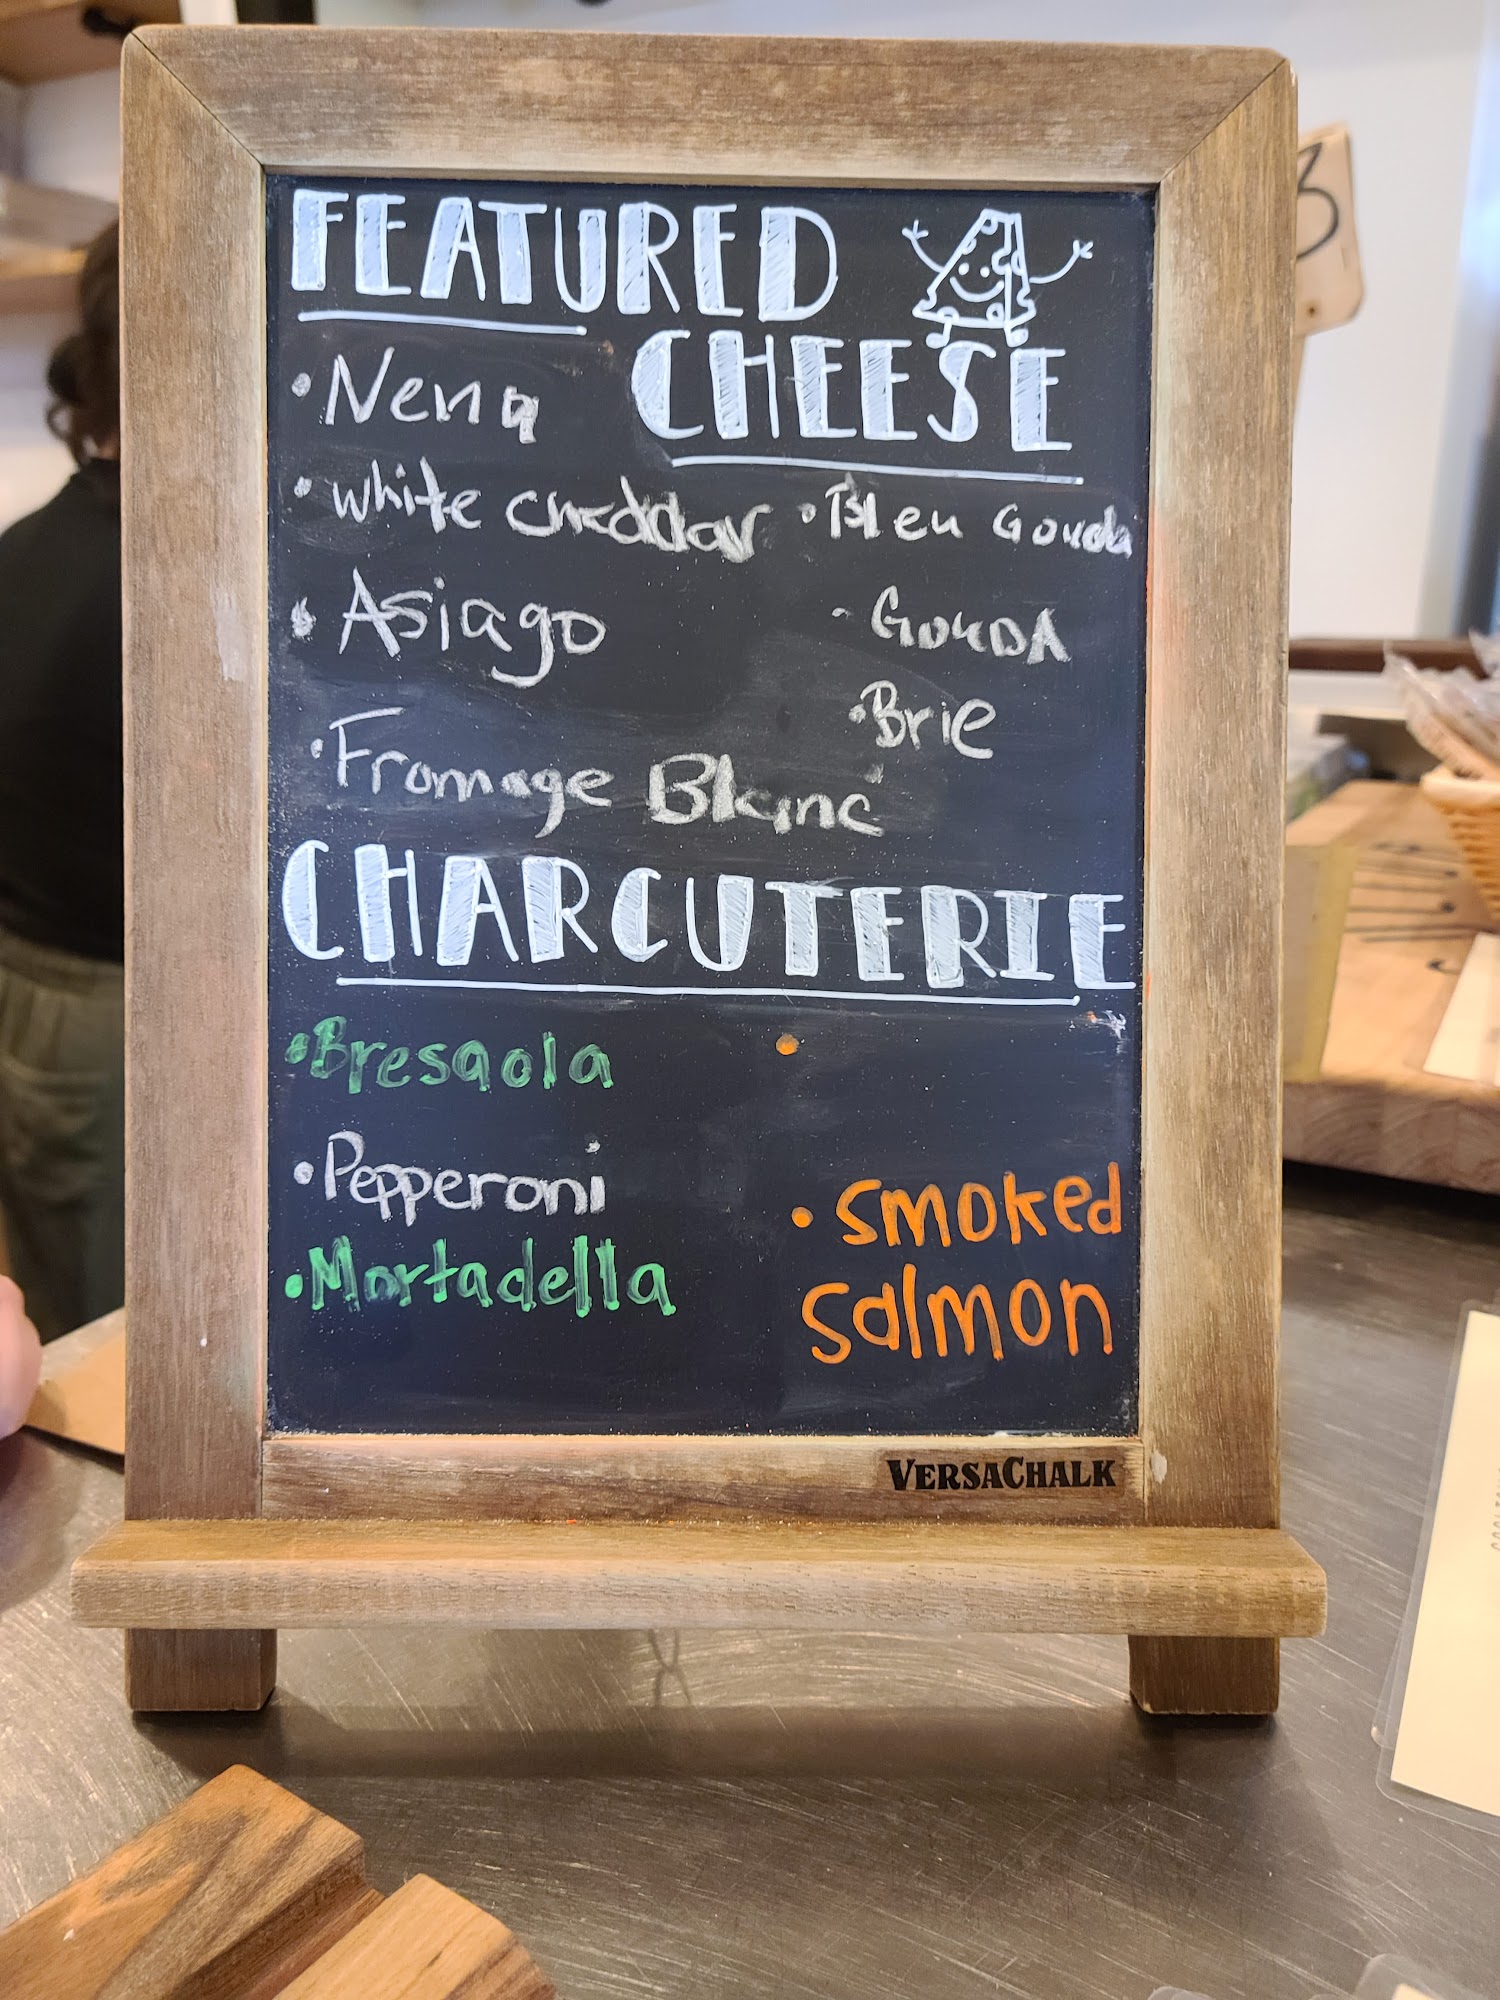 FEATURED
CHEESE
• Nena
• white cheddar
• Bleu Gouda
• Asiago
• GOUDA
• Brie
• Fromage Blanc
CHARCUTERIE
• Bresaola
•
• Pepperoni
• Mortadella
• smoked
salmon
VERSACHALK
3